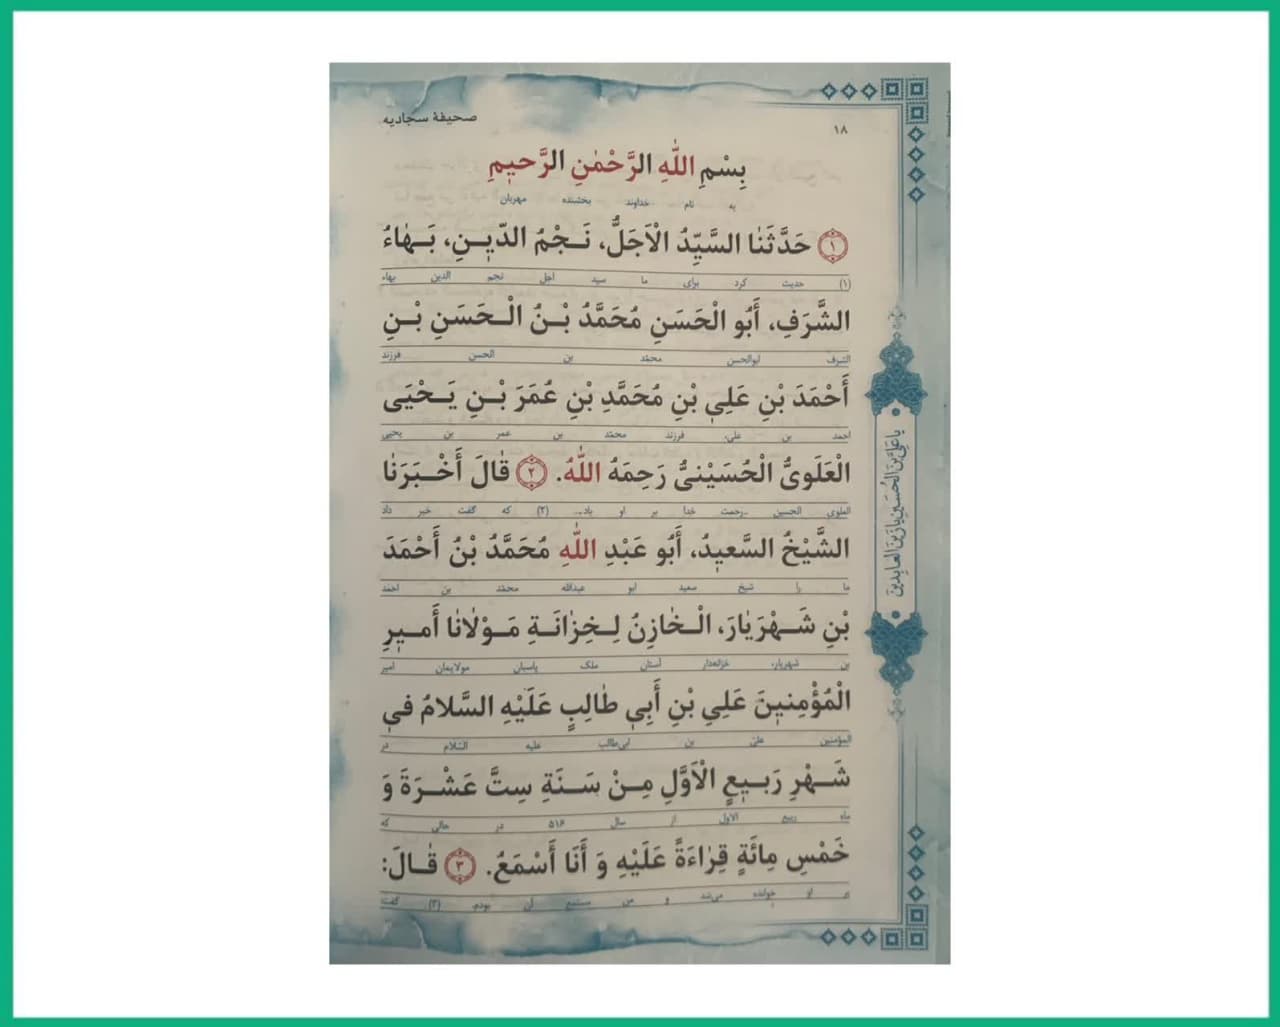 ۱۸
صحیفهٔ سجادیه
بِسْمِ اللّٰهِ الرَّحْمٰنِ الرَّحیٖمِ
به نام خداوند بخشنده مهربان
۱ حَدَّثَنٰا السَّیِّدُ الْاَجَلُّ، نَـجْمُ الدّیٖـنِ، بَـهٰاءُ
(۱) حدیث کرد برای ما سید اجل نجم الدین بهاء
الشَّرَفِ، أَبُو الْحَسَنِ مُحَمَّدُ بْـنُ الْـحَسَنِ بْـنِ
الشرف ابوالحسن محمّد بن الحسن فرزند
أَحْمَدَ بْنِ عَلِیٖ بْنِ مُحَمَّدِ بْنِ عُمَرَ بْـنِ یَـحْیَی
احمد بن علی، فرزند محمّد بن عمر بن یحیی
الْعَلَوِیُّ الْحُسَیْنِیُّ رَحِمَهُ اللّٰهُ. ۲ قٰالَ أَخْـبَرَنٰا
العلوی الحسین ـ رحمت خدا بر او باد ـ. (۲) که گفت خبر داد
الشَّیْخُ السَّعیٖدُ، أَبُو عَبْدِ اللّٰهِ مُحَمَّدُ بْنُ أَحْمَدَ
ما را شیخ سعید ابو عبدالله محمّد بن احمَد
بْنِ شَـهْرَیٰارَ، الْـخٰازِنُ لِـخِزٰانَـةِ مَـوْلاٰنٰا أَمـیٖرِ
بن شهریار، خزانه‌دار آستان ملک پاسبان مولایمان امیر
الْمُؤْمِنیٖنَ عَلِیِ بْنِ أَبیٖ طٰالِبٍ عَلَیْهِ السَّلامُ فیٖ
المؤمنین علیّ بن ابی‌طالب علیه السّلام در
شَـهْرِ رَبـیٖعٍ الْاَوَّلِ مِـنْ سَـنَةِ سِتَّ عَشْـرَةَ وَ
ماه ربیع الاول از سال ۵۱۶ در حالی که
خَمْسِ مِائَةٍ قِرٰاءَةً عَلَیْهِ وَ أَنَا أَسْمَعُ. ۳ قٰـالَ:
بر او خوانده می‌شد و من مستمع آن بودم. (۳) گفت:
یا عَلِیَّ بْنَ الْحُسَیْنِ یا زَیْنَ الْعابِدینَ